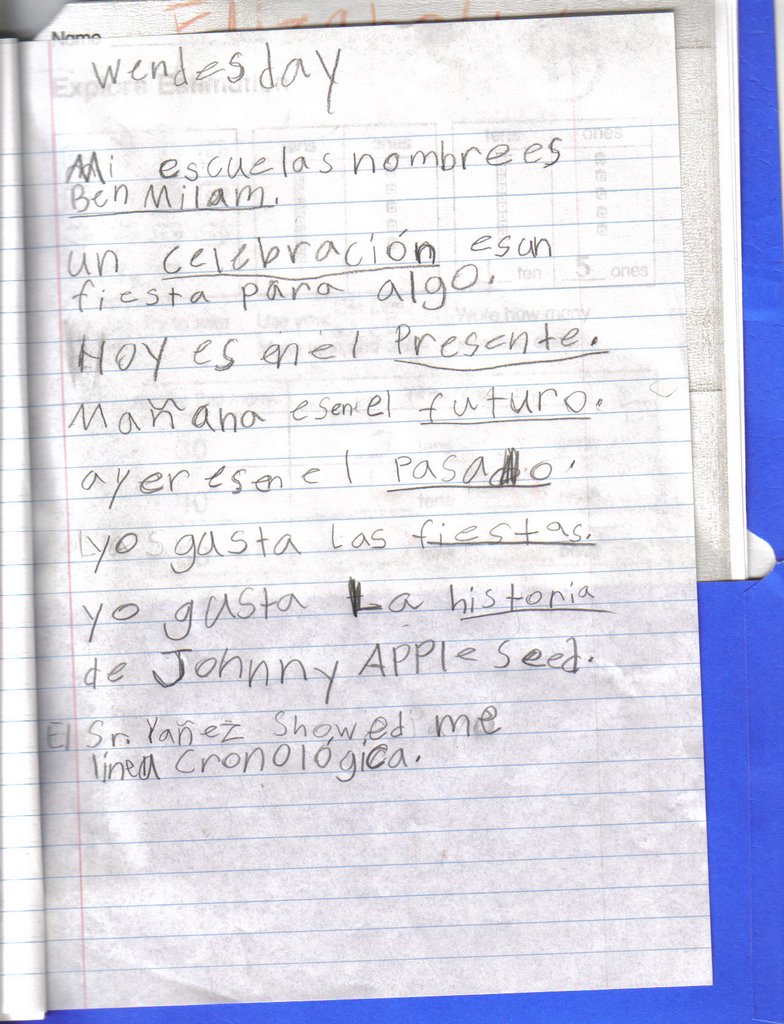 Name
Wendesday
Mi escuelas nombre es
Ben Milam.
un celebración es un
fiesta para algo.
Hoy es en el Presente.
Mañana es en el futuro.
ayer es en el pasado.
yo gusta las fiestas.
yo gusta La historia
de Johnny Apple Seed.
El Sr. Yañez Showed me
línea Cronológica.